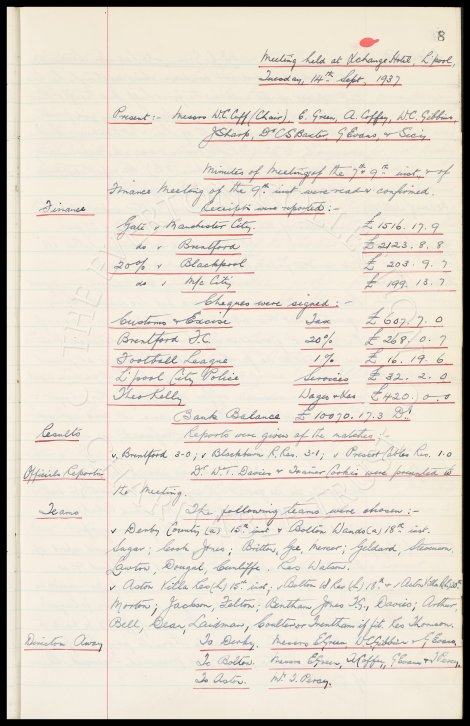 8
Meeting held at Xchange Hotel, L'pool,
Tuesday, 14th Sept, 1937
Present :- Messrs W.C. Cuff (Chair), E. Green, A. Coffey, W.C. Gibbins,
J Sharp, Dr C.S Baxter, G Evans & Secy
Minutes of Meeting of the 7th & 9th inst. & of
Finance Meeting of the 9th inst were read & confirmed.
Finance Receipts were reported :-
Gate v Manchester City. £ 1516. 17. 9
do v Brentford £ 2123. 8. 8
20% v Blackpool £ 203. 9. 7
do v M/c City £ 199. 13. 7
Cheques were signed :-
Customs & Excise Tax £ 607. 7. 0
Brentford F.C. 20% £ 268. 0. 7
Football League 1% £ 16. 19. 6
L'pool City Police Services £ 32. 2. 0
Theo Kelly Wages &c £ 420. 0. 0
Bank Balance £ 10070. 17. 3 Dr.
Results Reports were given of the matches :-
v. Brentford 3-0; v Blackburn R. Res. 3-1; v Prescot Cables Res. 1-0
Officials Reports Dr. W.T. Davies & Trainer Cooke were presented to
the Meeting.
Teams The following teams were chosen :-
v Derby County (a) 15th inst & Bolton Wands (a) 18th inst.
Sagar; Cook Jones; Britton, Gee, Mercer; Geldard, Stevenson,
Lawton, Dougal, Cunliffe. Res Watson.
v Aston Villa Res (h) 15th inst, Bolton W Res (h) 18th & Aston Villa Res
Morton; Jackson, Felton; Bentham Jones T.G., Davies; Arthur,
Bell, Dean, Laidman, Coulter or Trentham if fit. Res Thomson.
Directors Away To Derby. Messrs E Green, W.C. Gibbins & G Evans
To Bolton. Messrs E Green, A Coffey, G Evans & T Percy.
To Aston. Mr. T. Percy.